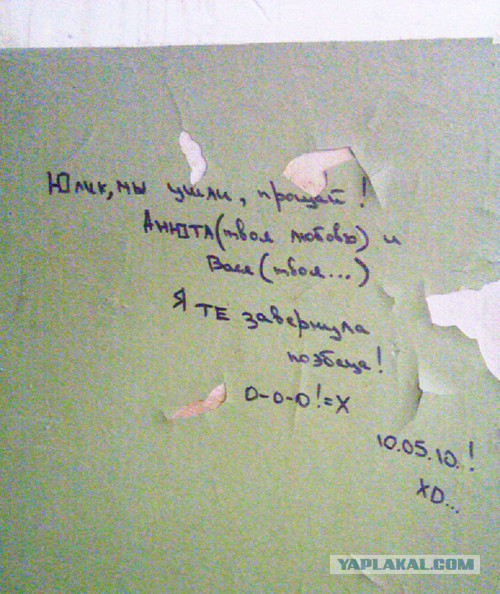 Юлик, мы ушли, прощай!
Анюта (твоя любовь) и
Вася (твоя...)
Я ТЕ завернула
поэбеца!
О-О-О!=Х
10.05.10.!
ХD...
YAPLAKAL.COM